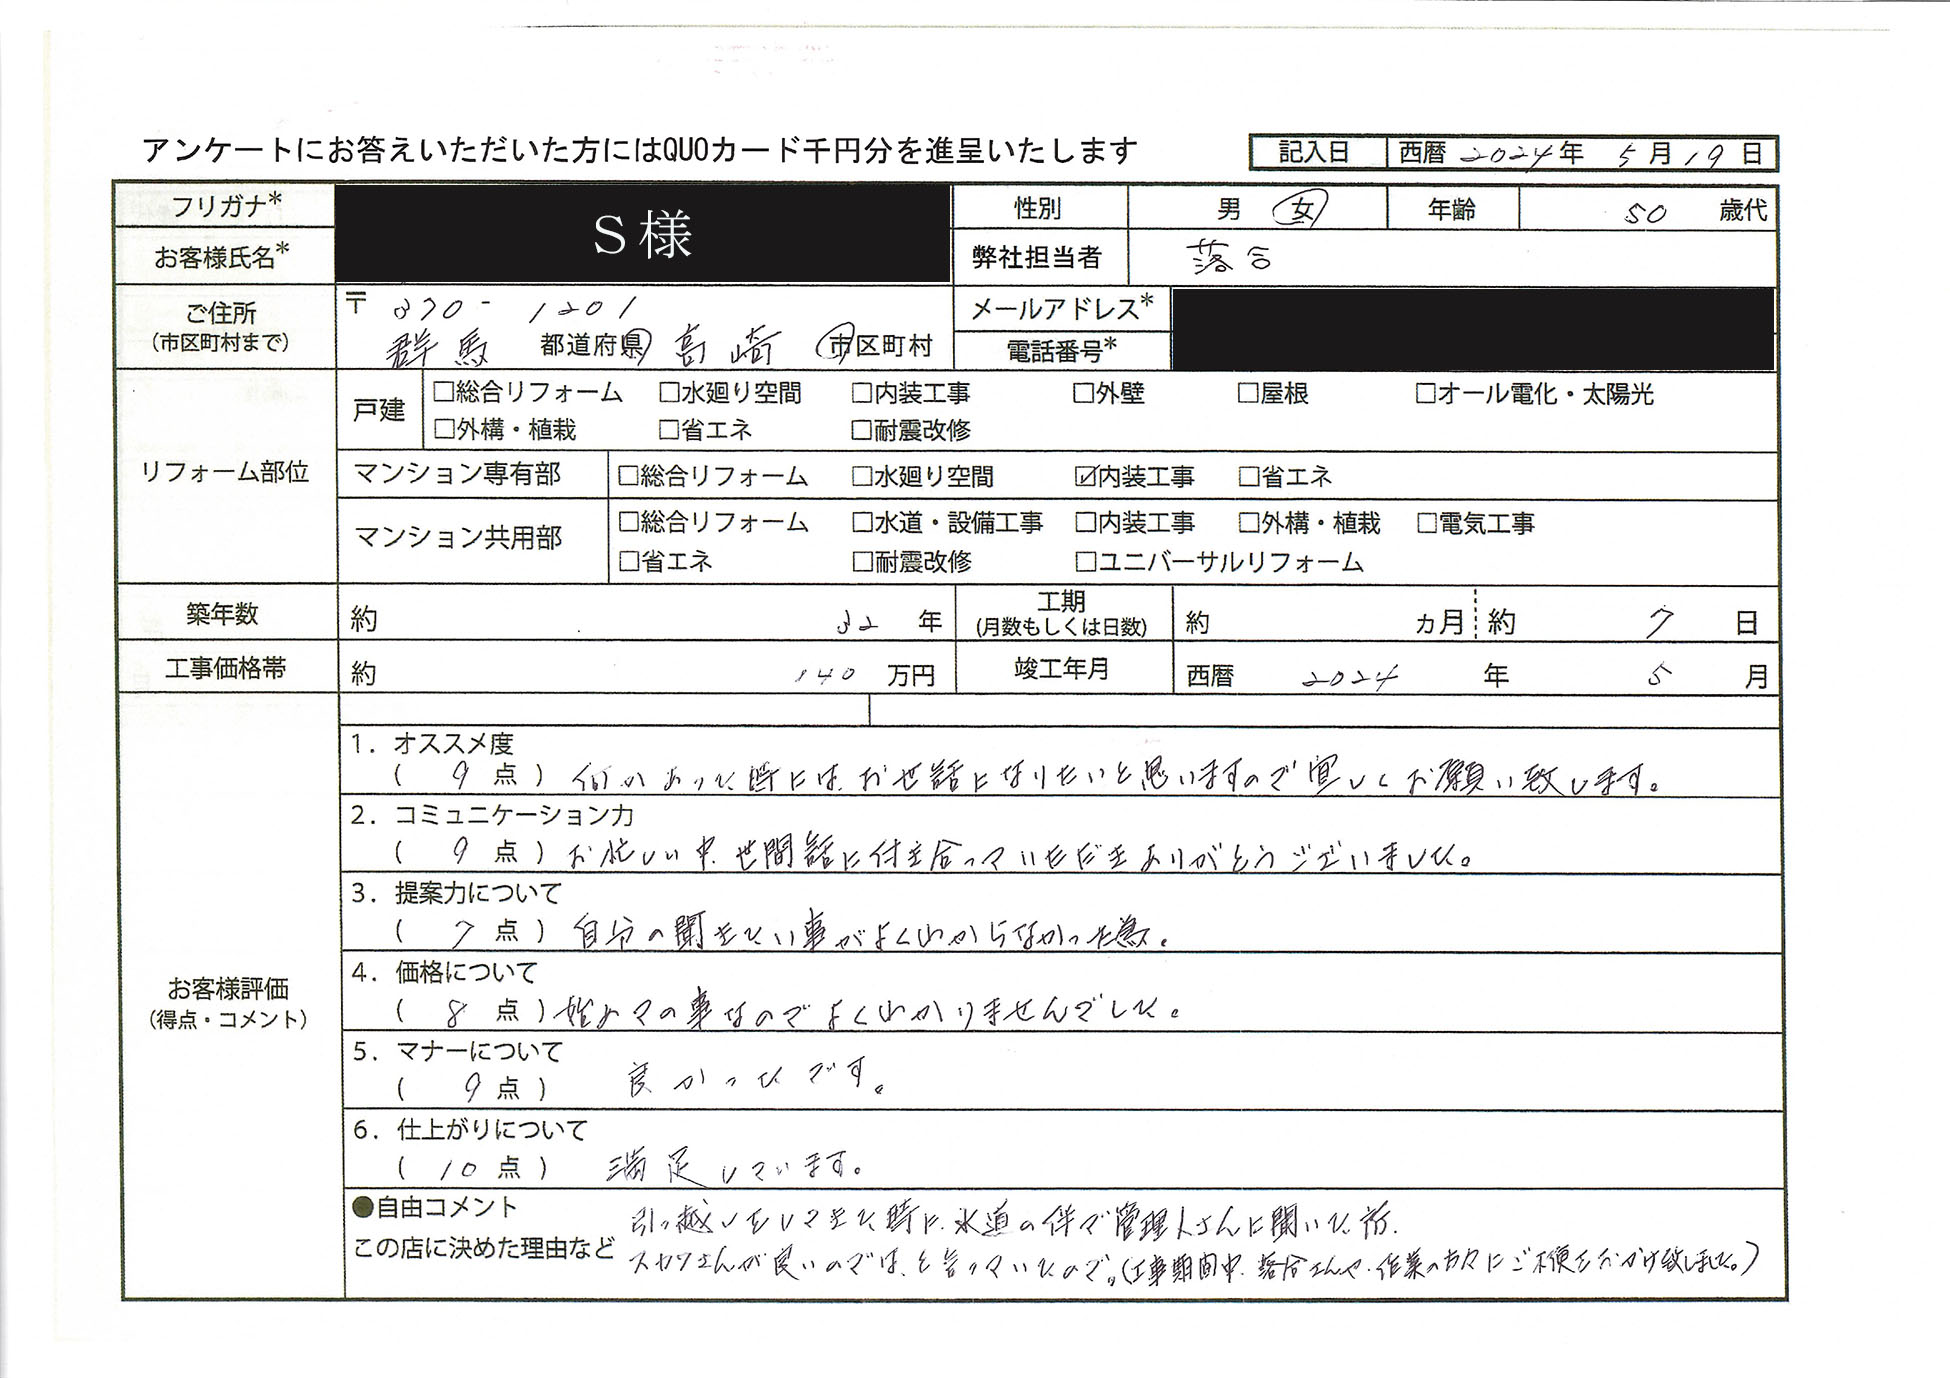 アンケートにお答えいただいた方にはQUOカード千円分を進呈いたします
記入日 西暦 2024年 5月19日
フリガナ* S様 性別 男 女 年齢 50 歳代
お客様氏名* 弊社担当者 落合
ご住所 (市区町村まで) 〒370-1201 メールアドレス*
群馬 都道府県 高崎 市区町村 電話番号*
リフォーム部位
戸建 □総合リフォーム □水廻り空間 □内装工事 □外壁 □屋根 □オール電化・太陽光
□外構・植栽 □省エネ □耐震改修
マンション専有部 □総合リフォーム □水廻り空間 ☑内装工事 □省エネ
マンション共用部 □総合リフォーム □水道・設備工事 □内装工事 □外構・植栽 □電気工事
□省エネ □耐震改修 □ユニバーサルリフォーム
築年数 約 32 年 工期 (月数もしくは日数) 約 カ月 約 7 日
工事価格帯 約 140 万円 竣工年月 西暦 2024 年 5 月
お客様評価
(得点・コメント)
1. オススメ度
( 9 点 ) 何かあった時には、お世話になりたいと思いますので宜しくお願い致します。
2. コミュニケーション力
( 9 点 ) お忙しい中、世間話に付き合っていただきありがとうございました。
3. 提案力について
( 7 点 ) 自分の聞きたい事がよくわからなかった為。
4. 価格について
( 8 点 ) 始めての事なのでよくわかりませんでした。
5. マナーについて
( 9 点 ) 良かったです。
6. 仕上がりについて
( 10 点 ) 満足しています。
●自由コメント 引っ越しをしてきた時に、水道の件で管理人さんに聞いた所、
この店に決めた理由など スカワさんが良いのでは、と言っていたので。(工事期間中、落合さんや、作業の方々にご不便をおかけ致しました。)